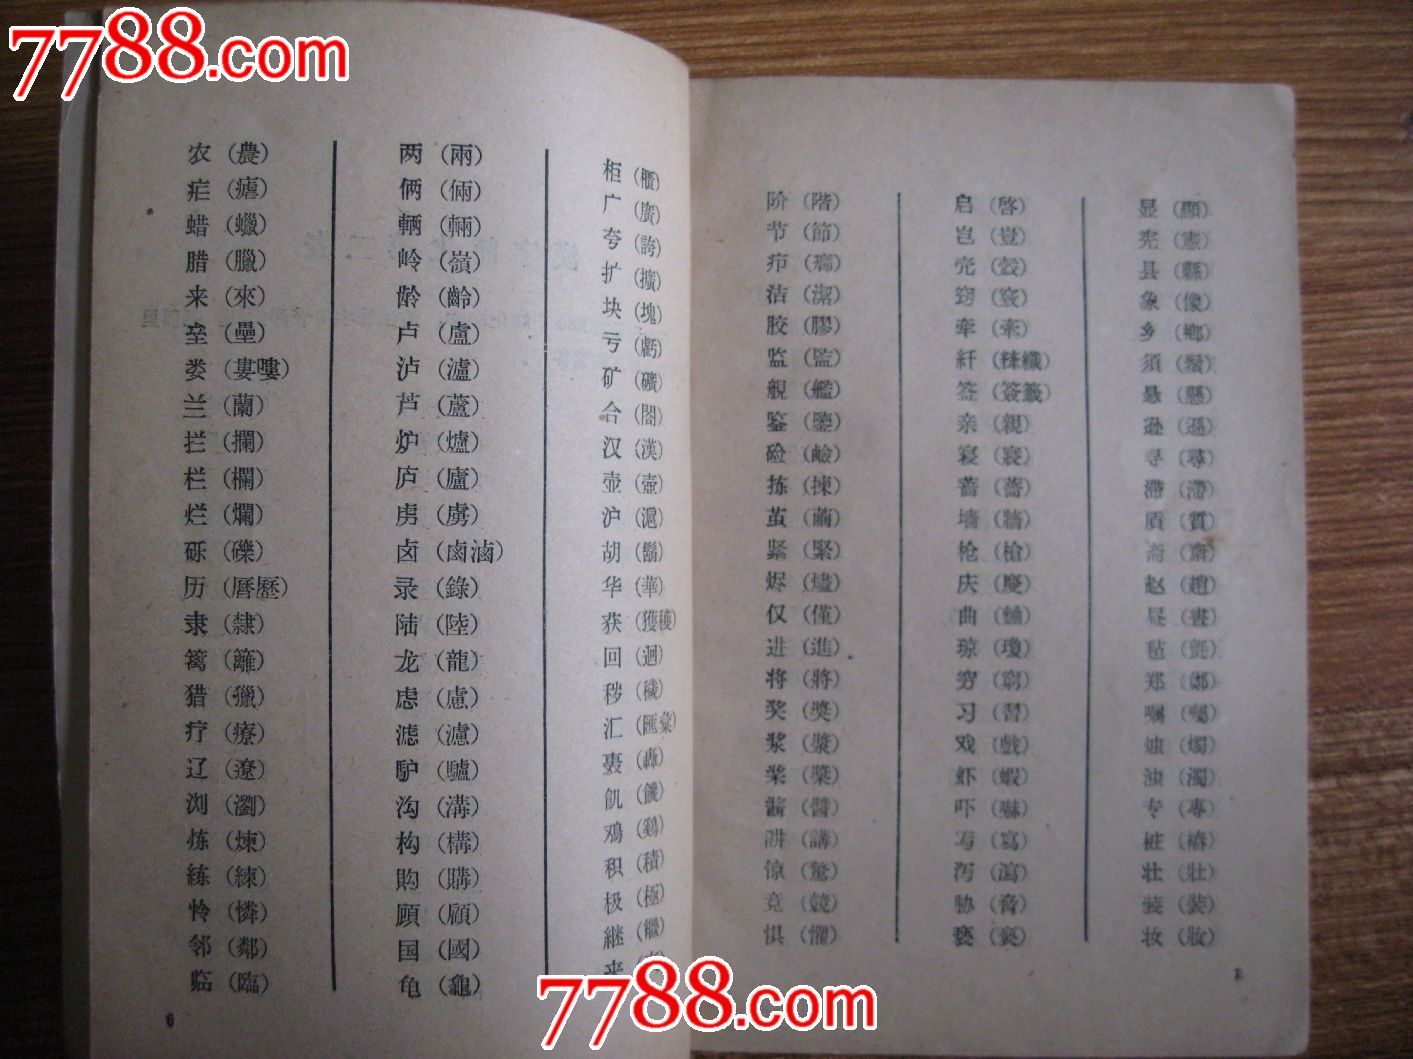 7788.com
7788.com
农(農)
疟(瘧)
蜡(蠟)
腊(臘)
来(來)
垒(壘)
娄(婁嘍)
兰(蘭)
拦(攔)
栏(欄)
烂(爛)
砾(礫)
历(曆歷)
隶(隸)
篱(籬)
猎(獵)
疗(療)
辽(遼)
浏(瀏)
炼(煉)
練(練)
怜(憐)
邻(鄰)
临(臨)
两(兩)
俩(倆)
輌(輛)
岭(嶺)
龄(齡)
卢(盧)
泸(瀘)
芦(蘆)
炉(爐)
庐(廬)
虏(虜)
卤(鹵滷)
录(錄)
陆(陸)
龙(龍)
虑(慮)
滤(濾)
驴(驢)
沟(溝)
构(構)
购(購)
顾(顧)
国(國)
龟(龜)
柜(櫃)
广(廣)
夸(誇)
扩(擴)
块(塊)
亏(虧)
矿(礦)
合(閤)
汉(漢)
壶(壺)
沪(滬)
胡(鬍)
华(華)
获(獲穫)
回(迴)
秽(穢)
汇(匯彙)
轰(轟)
飢(饑)
鸡(鷄)
积(積)
极(極)
継(繼)
6
阶(階)
节(節)
疖(癤)
洁(潔)
胶(膠)
监(監)
舰(艦)
鉴(鑒)
硷(鹼)
拣(揀)
茧(繭)
紧(緊)
烬(燼)
仅(僅)
进(進)
将(將)
奖(獎)
浆(漿)
桨(槳)
酱(醬)
讲(講)
惊(驚)
竞(競)
惧(懼)
启(啓)
岂(豈)
壳(殼)
窍(竅)
牵(牽)
紆(縴纖)
签(簽籤)
亲(親)
寝(寢)
蔷(薔)
墙(牆)
枪(槍)
庆(慶)
曲(麯)
琼(瓊)
穷(窮)
习(習)
戏(戲)
虾(蝦)
吓(嚇)
写(寫)
泻(瀉)
胁(脅)
亵(褻)
显(顯)
宪(憲)
县(縣)
象(像)
乡(鄉)
須(鬚)
悬(懸)
逊(遜)
寻(尋)
滞(滯)
质(質)
斋(齋)
赵(趙)
昼(晝)
毡(氈)
郑(鄭)
嘱(囑)
烛(燭)
浊(濁)
专(專)
桩(樁)
壮(壯)
装(裝)
妆(妝)
7788.com